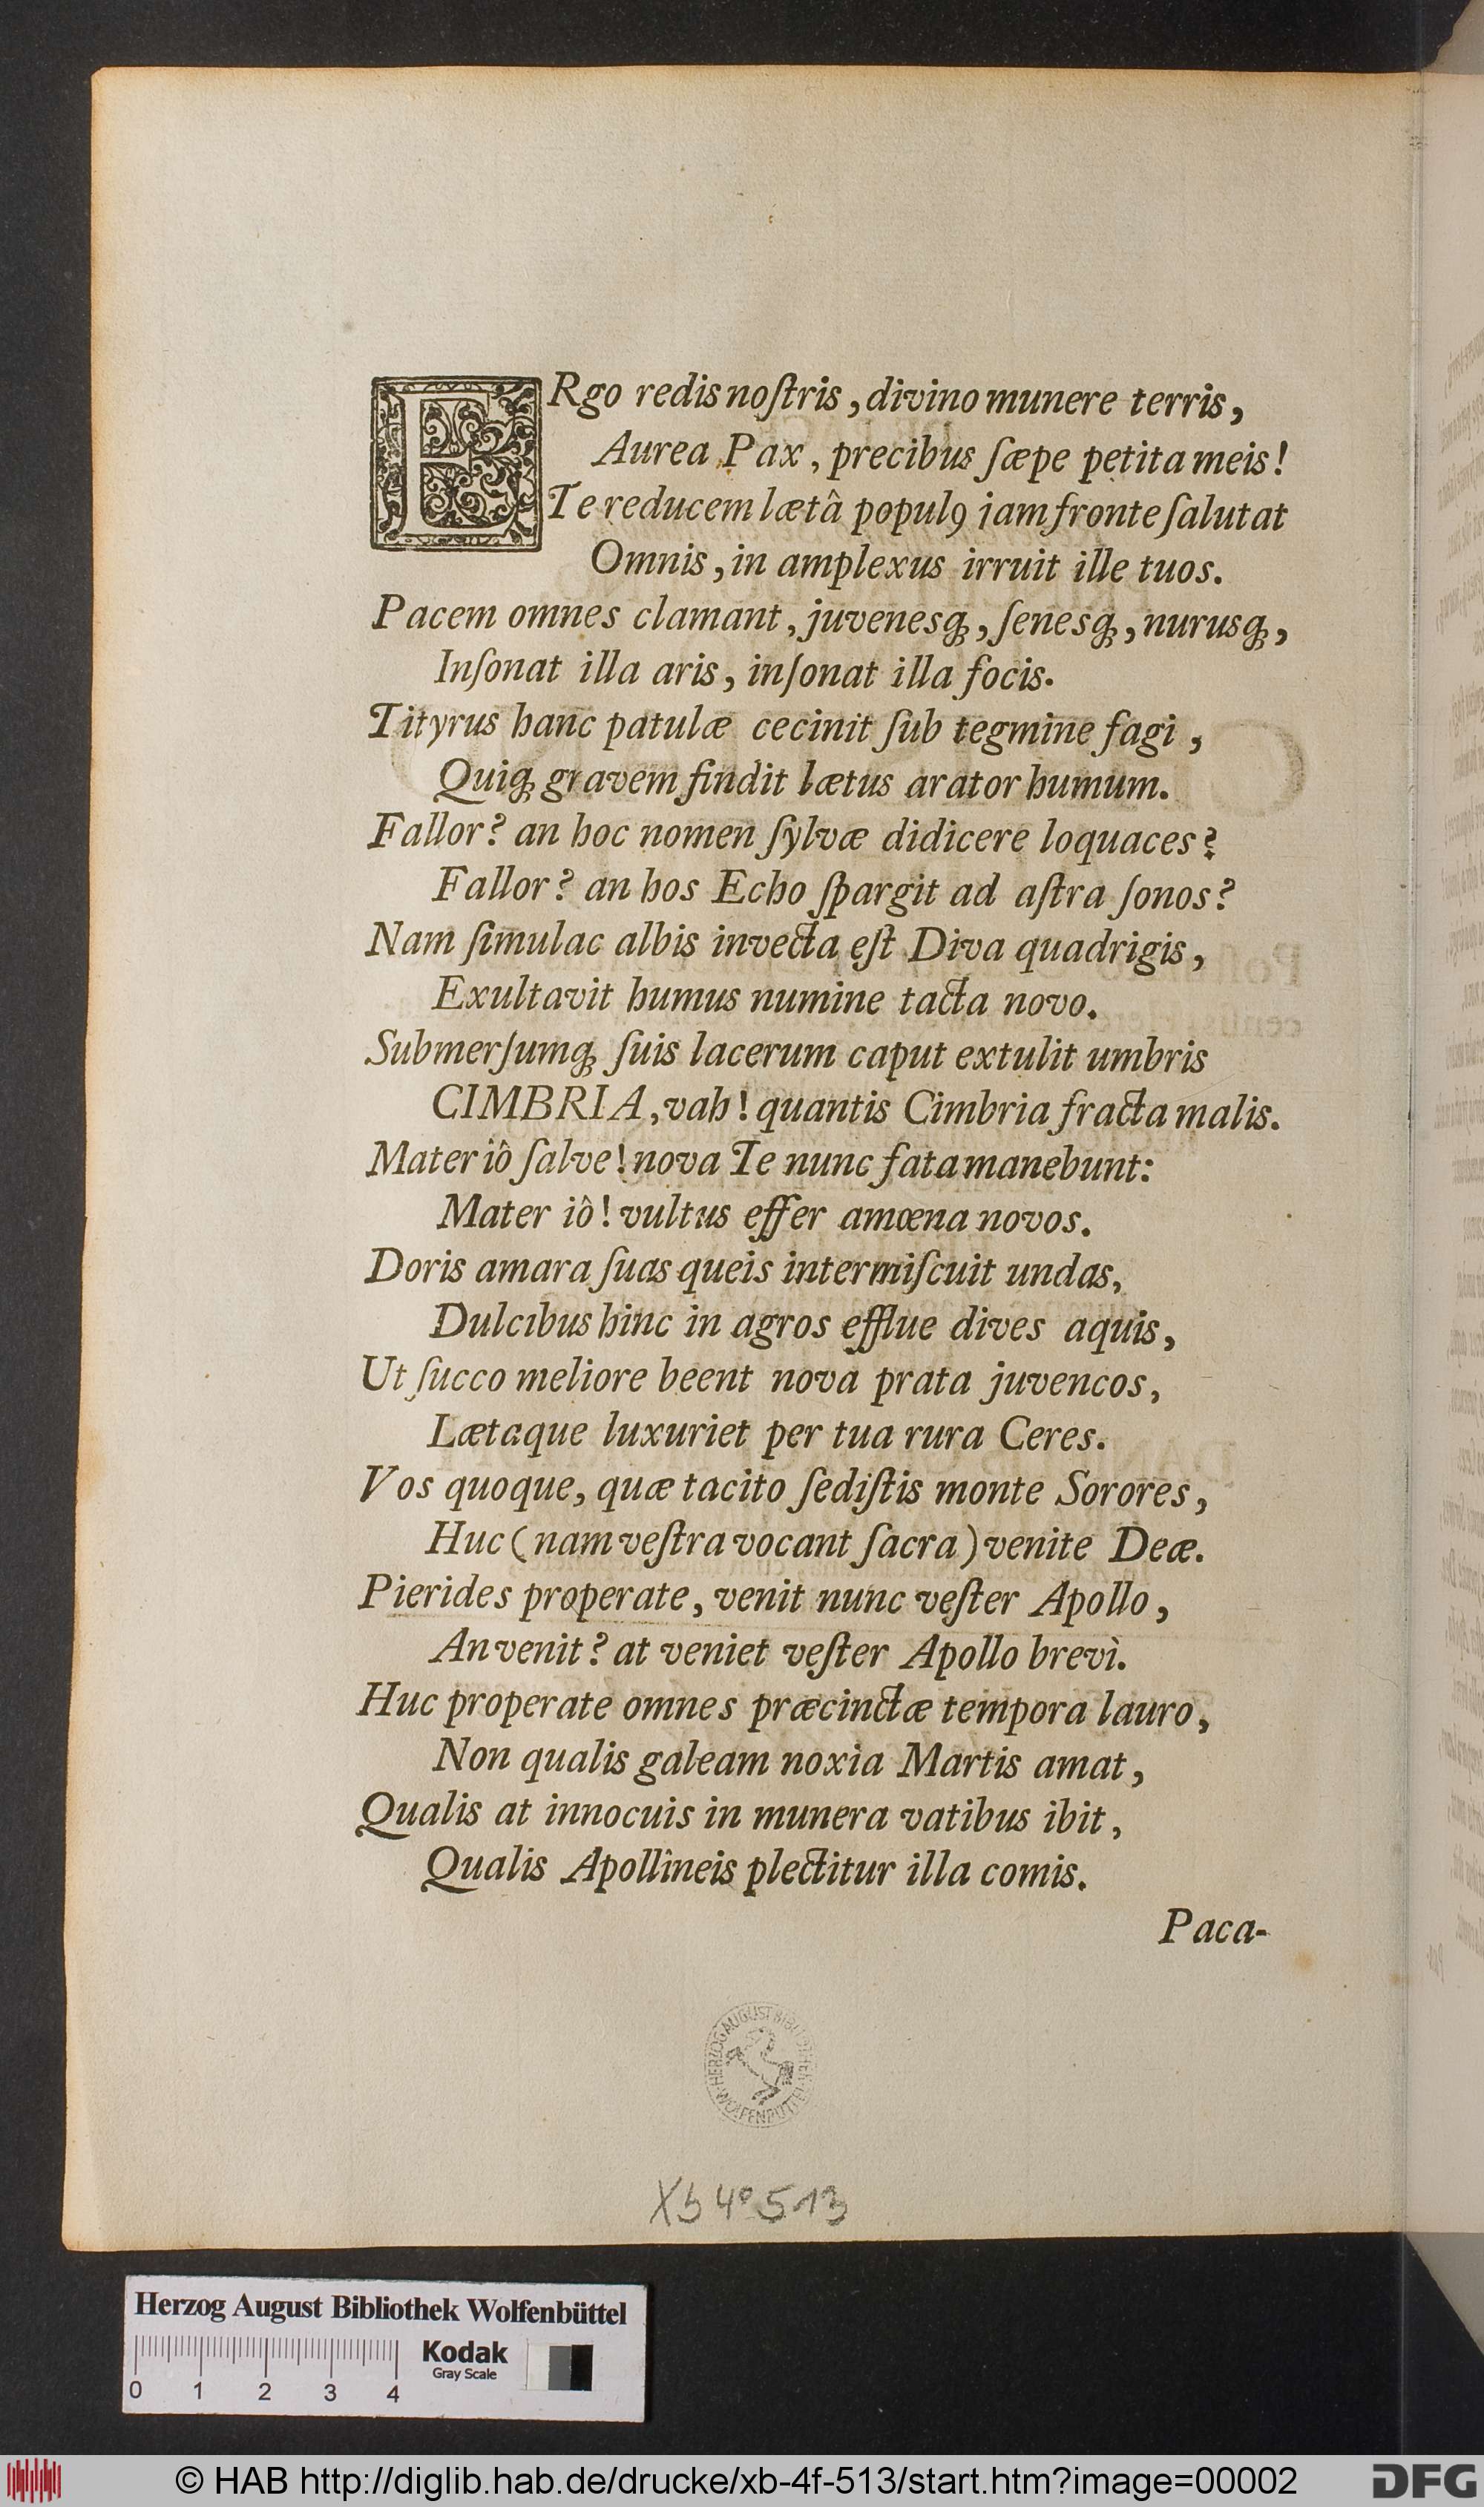 ERgo redis noſtris, divino munere terris,
Aurea Pax, precibus ſæpe petita meis!
Te reducem lætâ populꝰ jam fronte ſalutat
Omnis, in amplexus irruit ille tuos.
Pacem omnes clamant, juvenesq́;, ſenesq́;, nurusq́;,
Inſonat illa aris, inſonat illa focis.
Tityrus hanc patulæ cecinit ſub tegmine fagi,
Quiq́; gravem findit lætus arator humum.
Fallor? an hoc nomen ſylvæ didicere loquaces?
Fallor? an hos Echo ſpargit ad aſtra ſonos?
Nam ſimulac albis invecta eſt Diva quadrigis,
Exultavit humus numine tacta novo.
Submerſumq́; ſuis lacerum caput extulit umbris
CIMBRIA, vah! quantis Cimbria fracta malis.
Mater iô ſalve! nova Te nunc fata manebunt:
Mater iô! vultus effer amœna novos.
Doris amara ſuas queis intermiſcuit undas,
Dulcibus hinc in agros efflue dives aquis,
Ut ſucco meliore beent nova prata juvencos,
Lætaque luxuriet per tua rura Ceres.
Vos quoque, quæ tacito ſediſtis monte Sorores,
Huc (nam veſtra vocant ſacra) venite Deæ.
Pierides properate, venit nunc veſter Apollo,
An venit? at veniet veſter Apollo brevì.
Huc properate omnes præcinctæ tempora lauro,
Non qualis galeam noxia Martis amat,
Qualis at innocuis in munera vatibus ibit,
Qualis Apollineis plectitur illa comis.
Paca-
HERZOG AUGUST BIBLIOTHEK WOLFENBÜTTEL
Xb 4° 513
Herzog August Bibliothek Wolfenbüttel
Kodak
Gray Scale
0 1 2 3 4
© HAB http://diglib.hab.de/drucke/xb-4f-513/start.htm?image=00002
DFG